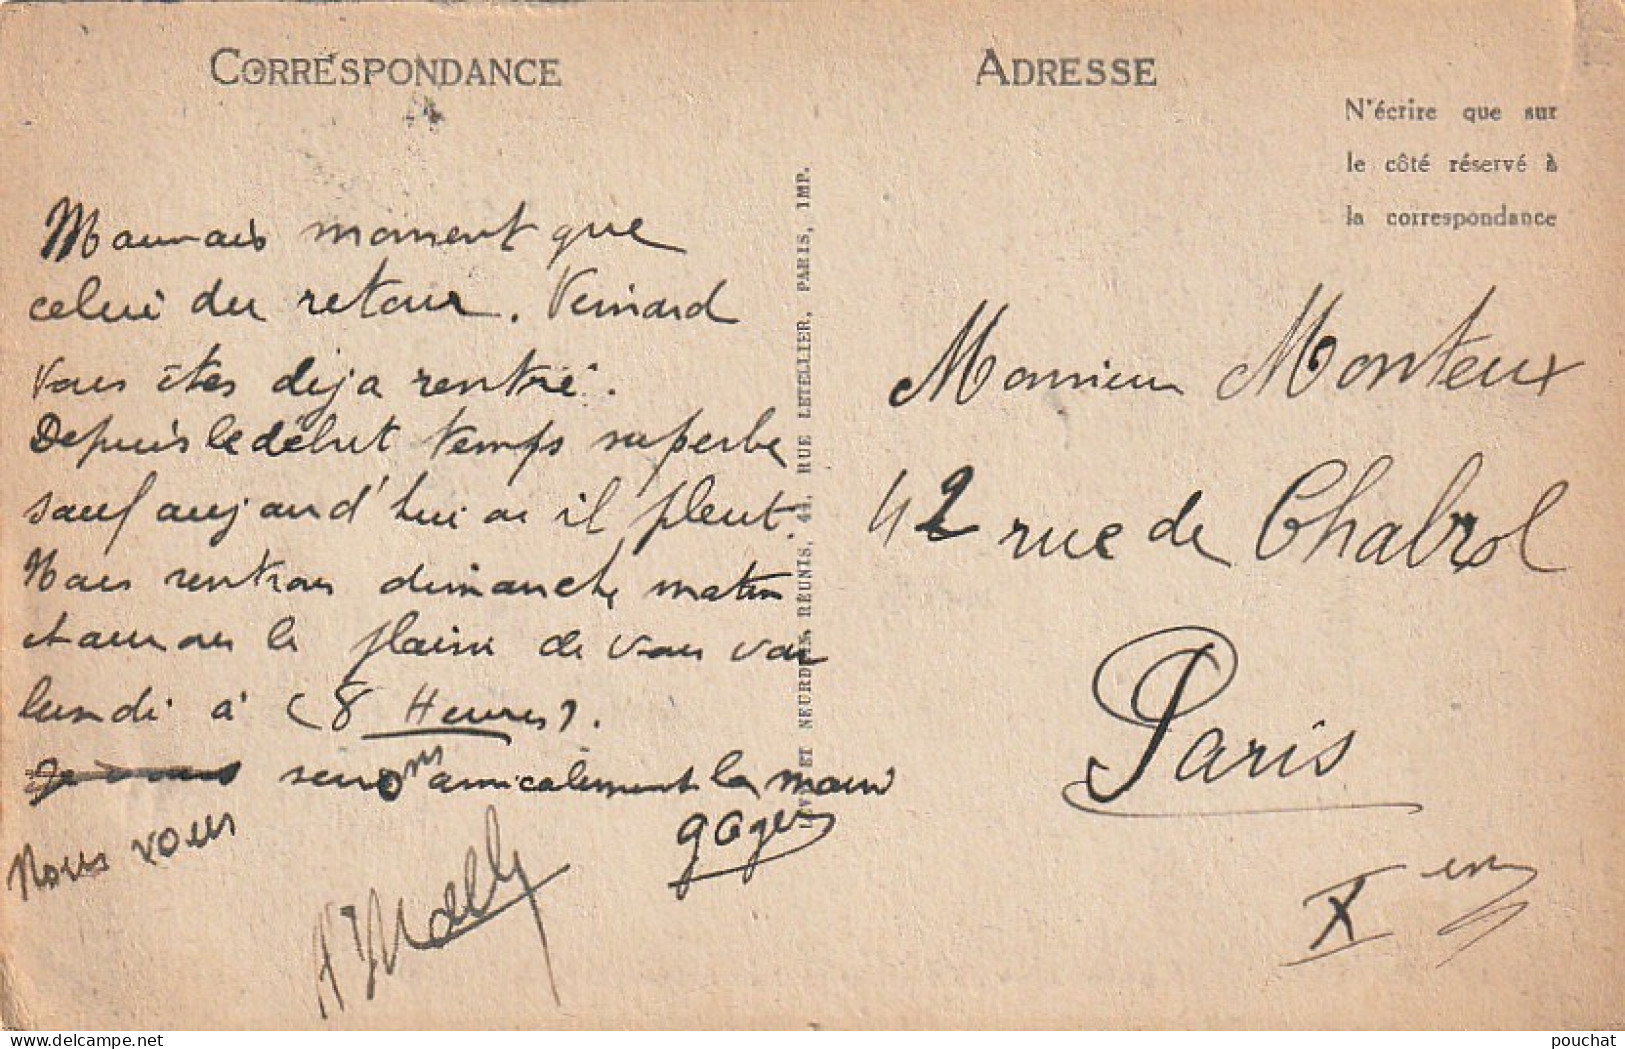 CORRESPONDANCE
Mauvais moment que
celui du retour. Veinard
vous êtes déja rentré.
Depuis le début temps superbe
sauf aujourd'hui ou il pleut.
Nous rentrons dimanche matin
et aurons le plaisir de vous voir
lundi à (8 Heures).
serrons amicalement la main
Nous vous
LÉVY ET NEURDEIN RÉUNIS, 44, RUE LETELLIER, PARIS, IMP.
ADRESSE
N'écrire que sur
le côté réservé à
la correspondance
Monsieur Monteux
42 rue de Chabrol
Paris
Xem
pouchat